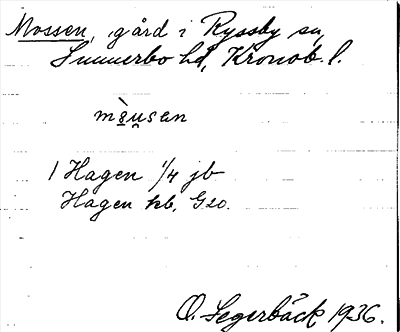 Mossen, gård i Ryssby sn,
Sunnerbo hd, Kronob. l.
mòu̯sen
1 Hagen 1/4 jb
Hagen kb, G20.
O. Segerbäck 1936.